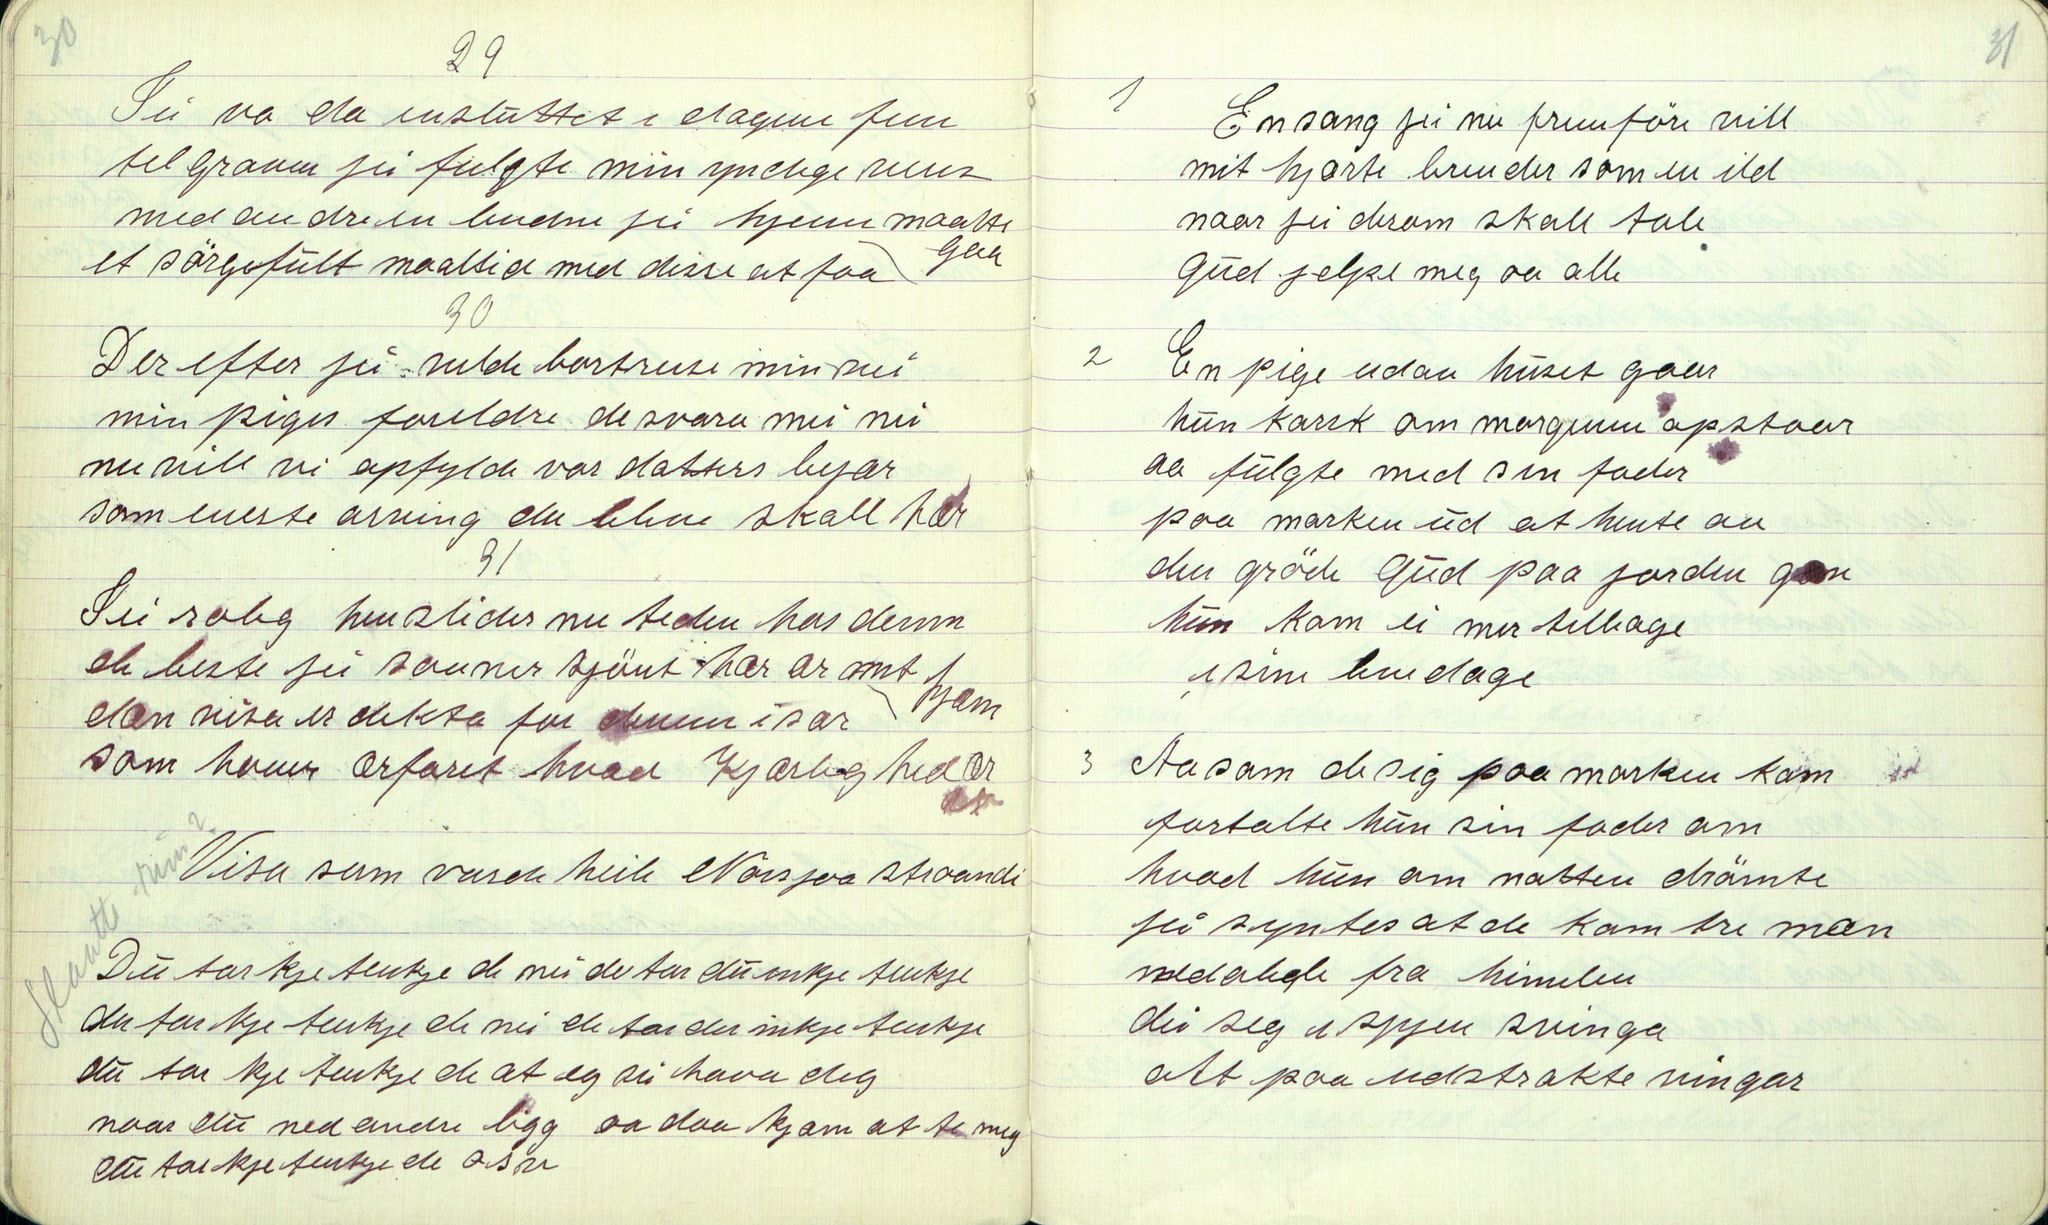 30
29
Jei va da enslüttet i dagene fem
tel graven jei fulgte min yndege venn
med andre en budne jei hjem maatte
gaa
et sörgefült maaltid med disse at faa
30
Der efter jei vilde bortreise min vei
min piges foreldre de svara mei nei
nu vill vi opfylde vor datters bejær
som eneste arving du bleve skall hær
31
Jei roleg henslider nu teden hos denm
de beste jei souner sjönt hær ær mit
hjæm
dæn visa er dekta for denem især
som haver ærfaret hvad kjærleghed ær
Visa sum varde heile Norsjaa straandi
Slaatte rim?
Dü tar kje tenkje de nei de tar dü inkje tenkje
du tar kje tenkje de nei de tar du inkje tenkje
dü tar kje tenkje de at eg sii hava deg
naar dü ned andre ligg oa daa kjæm at te meg
dü tar kje tenkje de osv
31
1 En sang jei nu fremföre vill
mit hjærte brender som en ild
naar jei derom skall tale
Güd jelpe meg oa alle
2 En pige udau hüset gaar
hün karsk om morgenen opstaar
aa fülgte med sin fader
paa marken üd at hente au
den gröde Güd paa jorden gav
hün kom ei mer telbage
i sine leuedage
3 Aa som de sig paa marken kom
fortalte hün sin fader om
hvad hün om natten drömte
jei syntes at de kom tre mæn
nedalede fra himelen
dei seg i skyen svinga
alt paa udstrakte vingar